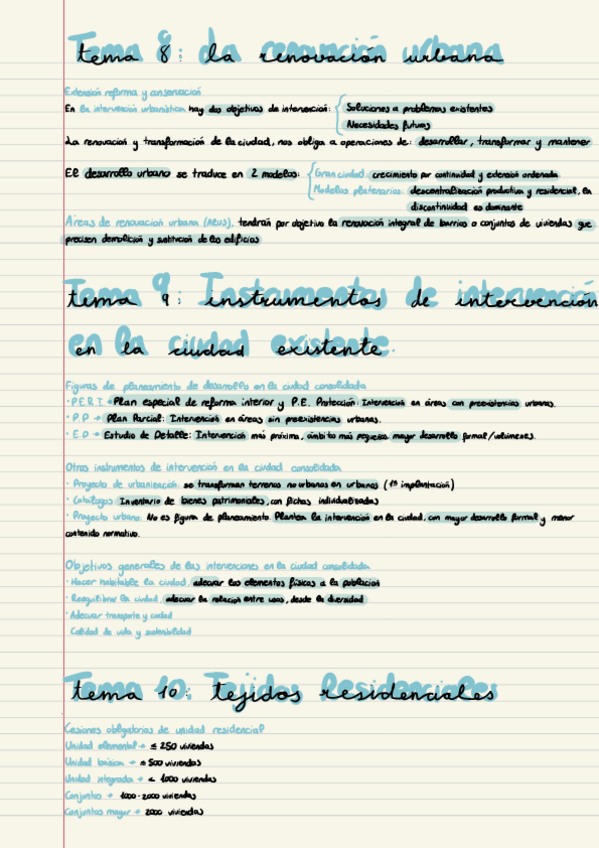 Tema 8: La renovación urbana
Extensión reforma y conservación
En la intervención urbanística hay dos objetivos de intervención: Soluciones a problemas existentes
Necesidades futuras
La renovacion y transformación de la ciudad, nos obliga a operaciones de: desarrollar, transformar y mantener
El desarrollo urbano se traduce en 2 modelos: Gran ciudad: crecimiento por continuidad y extensión ordenada
Modelos planetarios: descentralización productiva y residencial, la
discontinuidad es dominante
Áreas de renovación urbana (ARUS), tendrán por objetivo la renovación integral de barrios o conjuntos de viviendas que
precisen demolición y sustitución de los edificios
Tema 9: Instrumentos de intervención
en la ciudad existente.
Figuras de planeamiento de desarrollo en la ciudad consolidada
· P.E.R.I → Plan especial de reforma interior y P.E. Protección: Intervención en áreas con preexistencias urbanas.
· P.P → Plan Parcial: Intervención en áreas sin preexistencias urbanas.
· E.D → Estudio de Detalle: Intervención más próxima, ámbito más pequeño, mayor desarrollo formal/volúmenes.
Otros instrumentos de intervención en la ciudad consolidada
· Proyecto de urbanización: se transforman terrenos no urbanos en urbanos (1ª implantación)
· Catálogos: Inventario de bienes patrimoniales, con fichas individualizadas
· Proyecto urbano: No es figura de planeamiento. Plantea la intervención en la ciudad, con mayor desarrollo formal y menor
contenido normativo.
Objetivos generales de las intervenciones en la ciudad consolidada
· Hacer habitable la ciudad, adecuar los elementos físicos a la población
· Reequilibrar la ciudad, adecuar la relación entre usos, desde la diversidad
· Adecuar transporte y ciudad
Calidad de vida y sostenibilidad
Tema 10: Tejidos Residenciales
Cesiones obligatorias de unidad residencial
Unidad elemental → ≤ 250 viviendas
Unidad básica → ≤ 500 viviendas
Unidad integrada → < 1000 viviendas
Conjuntos → 1000-2000 viviendas
Conjuntos mayor → 2000 viviendas